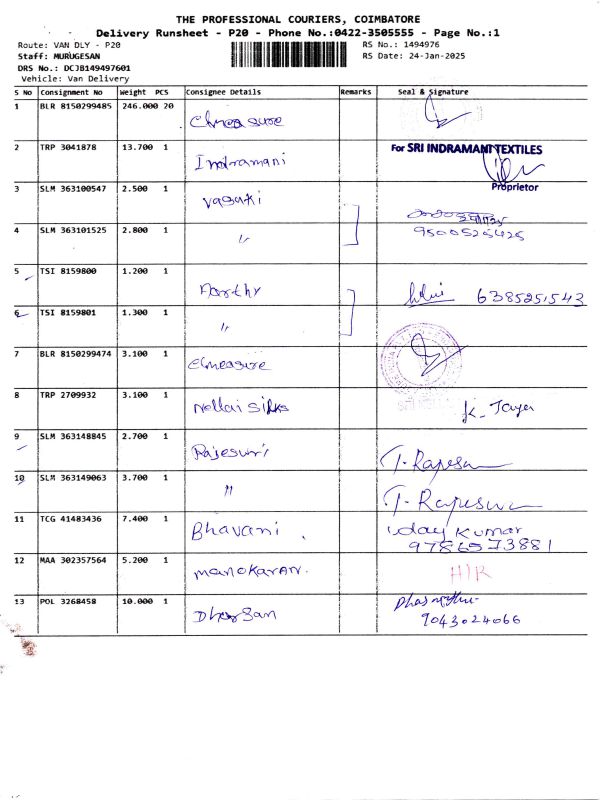 THE PROFESSIONAL COURIERS, COIMBATORE
Delivery Runsheet - P20 - Phone No.:0422-3505555 - Page No.:1
Route: VAN DLY - P20 RS No.: 1494976
Staff: MURUGESAN RS Date: 24-Jan-2025
DRS No.: DCJB149497601
Vehicle: Van Delivery
S No Consignment No Weight PCS Consignee Details Remarks Seal & Signature
1 BLR 8150299485 246.000 20 Elmeasure
2 TRP 3041878 13.700 1 Indramani For SRI INDRAMANI TEXTILES
Proprietor
3 SLM 363100547 2.500 1 Vasuki
4 SLM 363101525 2.800 1 〃 9500525425
5 TSI 8159800 1.200 1 Aarthy 6385251543
6 TSI 8159801 1.300 1 〃
7 BLR 8150299474 3.100 1 Elmeasure
8 TRP 2709932 3.100 1 Nellai Silks K. Jaya
9 SLM 363148845 2.700 1 Rajesuri T. Rajesw
10 SLM 363149063 3.700 1 〃 T. Rajeswa
11 TCG 41483436 7.400 1 Bhavani. Uday Kumar
9786573881
12 MAA 302357564 5.200 1 Manokaran. HIR
13 POL 3268458 10.000 1 Dharsan
9043024066